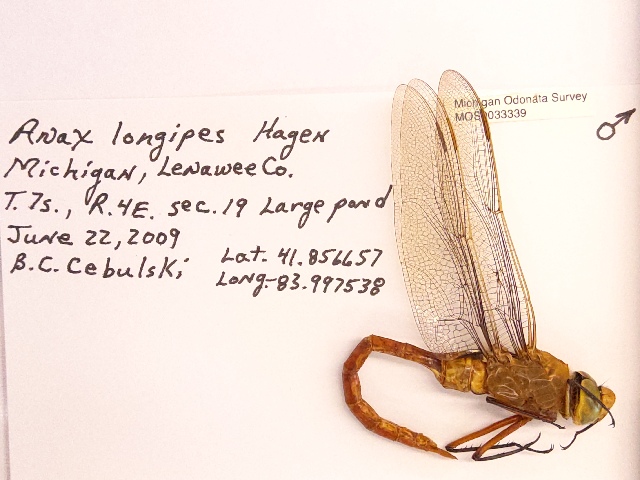 Anax longipes Hagen
Michigan, Lenawee Co.
T.7s., R.4E. sec.19 Large pond
June 22, 2009
B.C. Cebulski
Lat. 41.856657
Long-83.997538
Michigan Odonata Survey
MOS0033339
♂